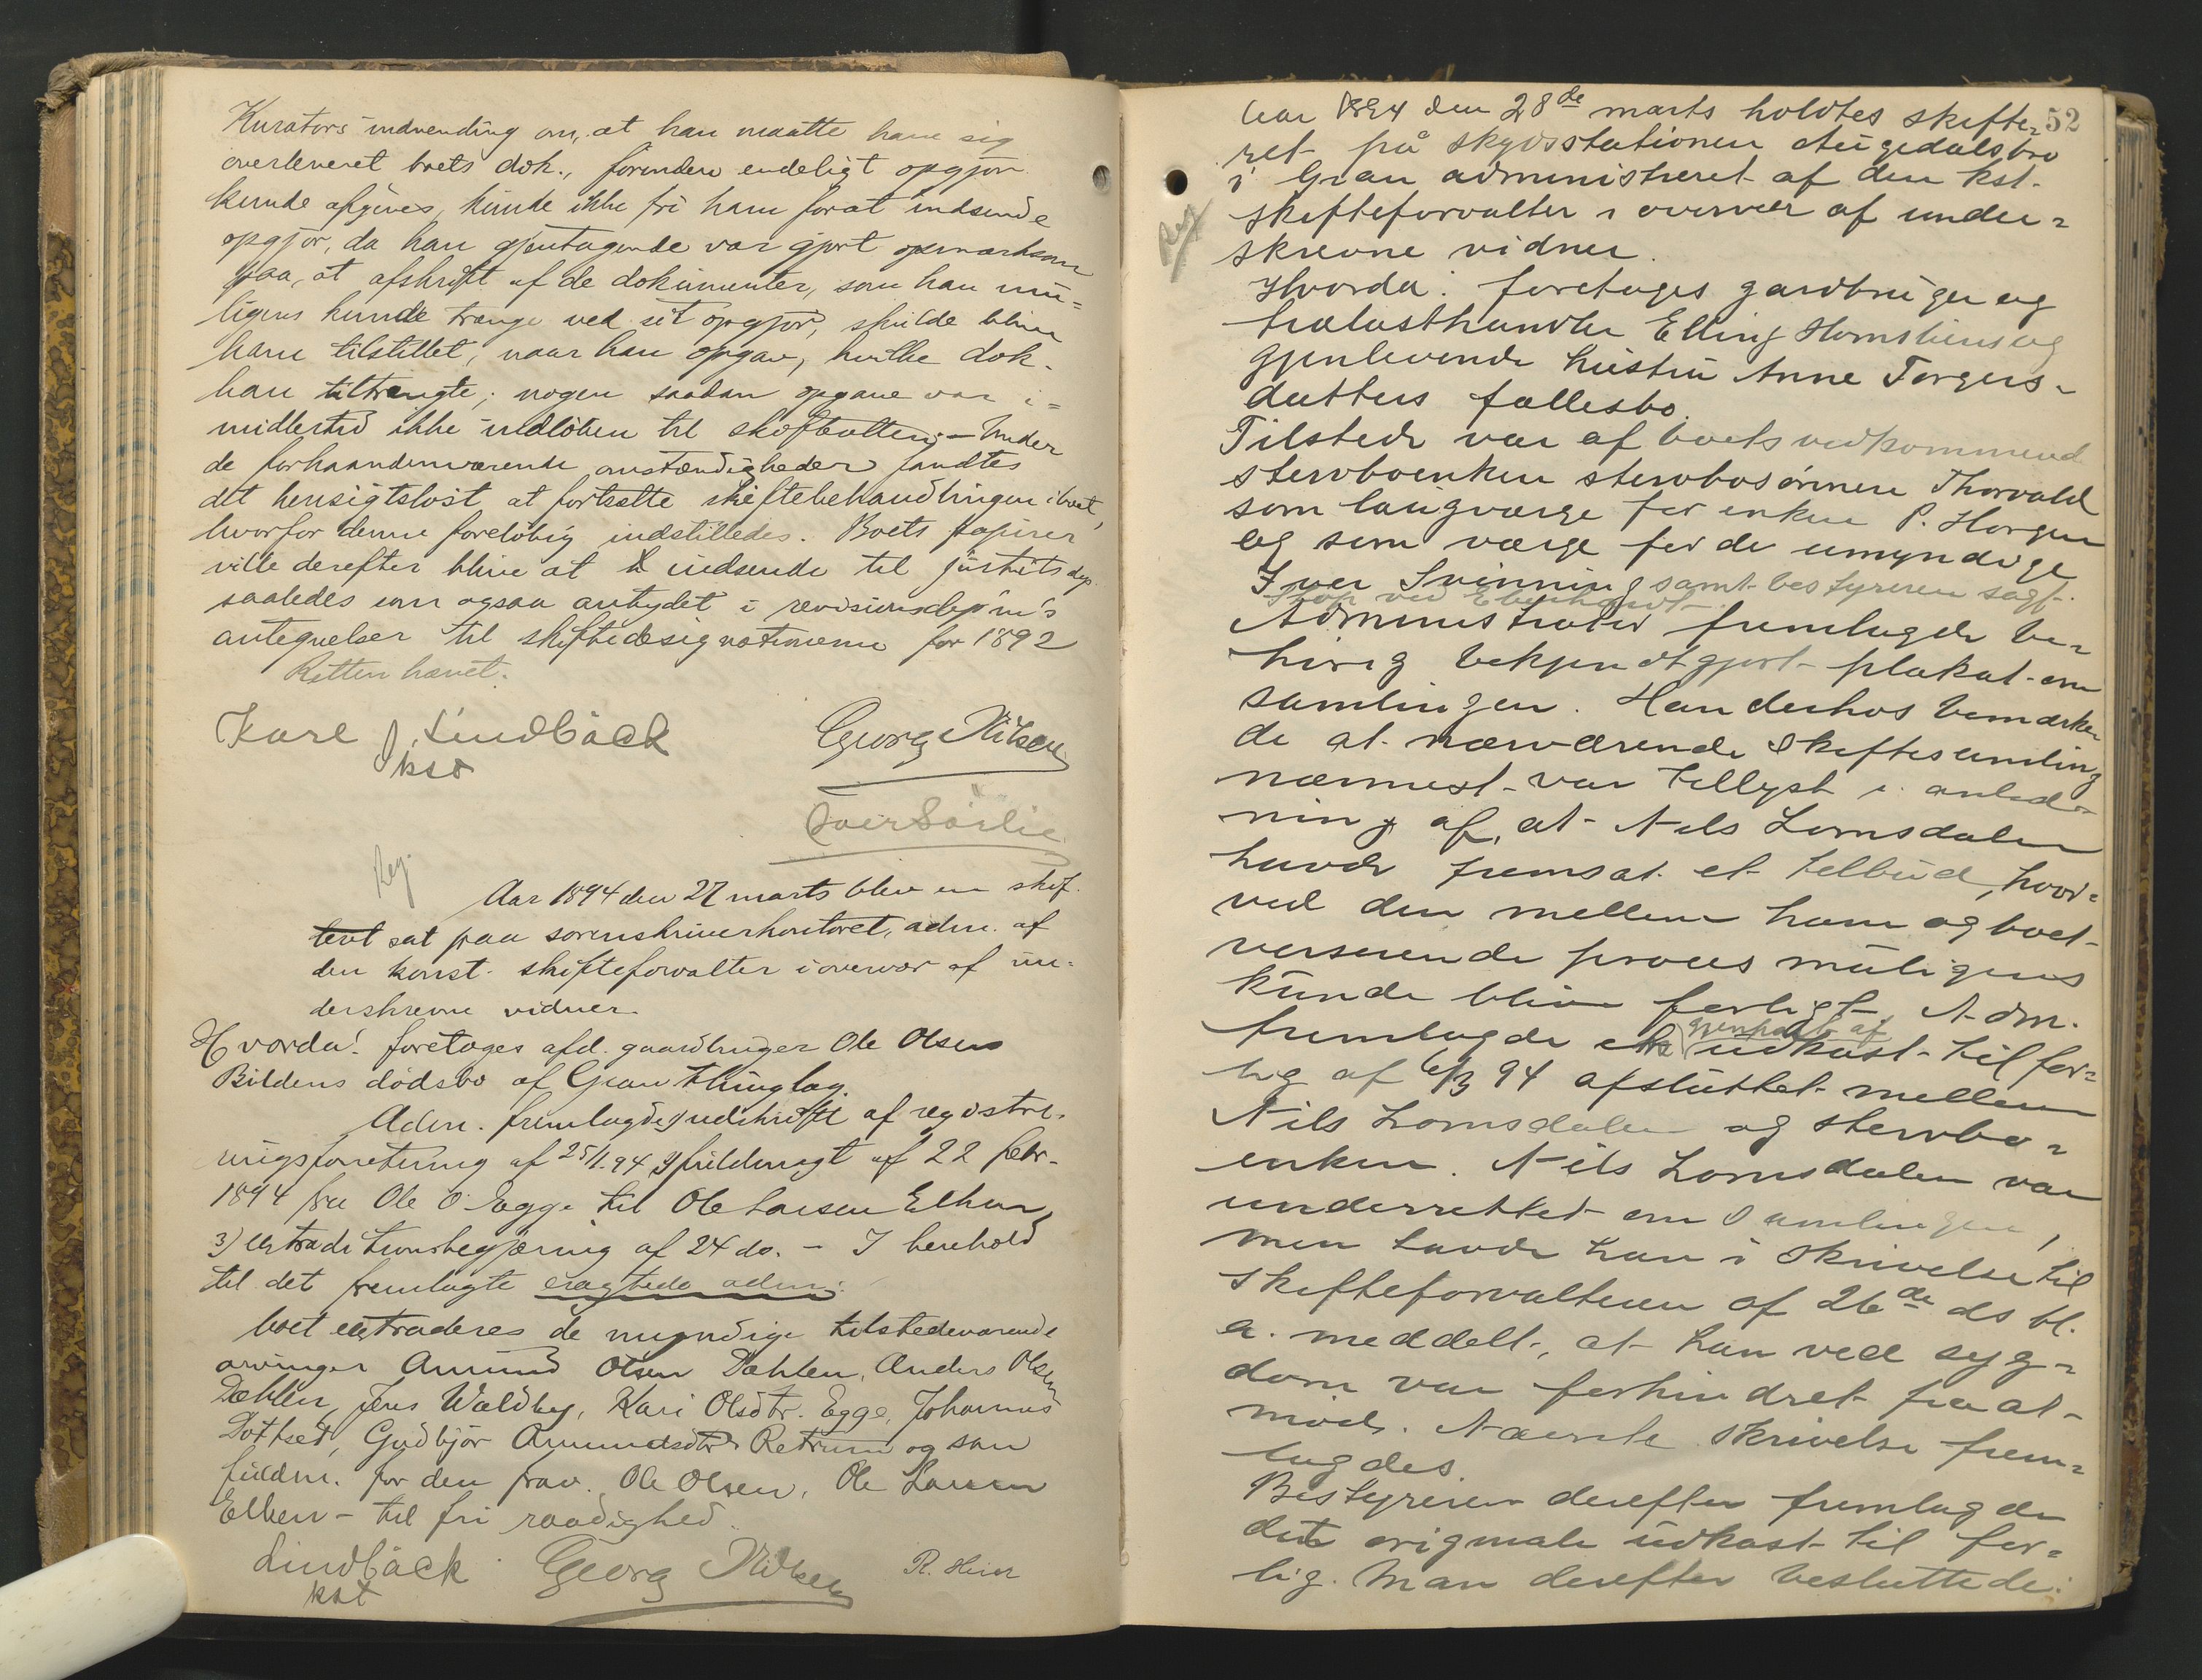 Kurators indvending om, at han maatte have sig
overleveret boets dok., forinden endeligt opgjør
kunde afgives, kunde ikke fri ham forat indsende
opgjør, da han gjentagende var gjort opmærksom
paa, at afskrift af de dokumenter, som han mu=
ligens kunde trænge ved sit opgjør, skulde blive
ham tilstillet, naar han opgav, hvilke dok.
han tiltrængte; nogen saadan opgave var i=
midlertid ikke indløben til skifteretten. – Under
de forhaandenværende omstændigheder fandtes
det hensigtsløst at fortsætte skiftebehandlingen i boet,
hvorfor denne foreløbig indstilledes. Boets papirer
ville derefter blive at indsende til justitsdep.
saaledes som ogsaa antydet i revisionsdep'm's
antegnelser til skiftedesignationerne for 1892
Retten hævet.
Karl J. Lindbäck
kst
Georg Nilsen
Iver Sørlie
Reg.
Aar 1894 den 27 marts blev en skif-
teret sat paa sorenskriverkontoret, adm. af
den konst. skifteforvalter i overvær af un-
derskrevne vidner.
Hvorda: foretoges afd. gaardbruger Ole Olsens
Bildens dødsbo af Gran thinglag.
Adm. fremlagde 1) udskrift af registre-
ringsforretning af 25/1.94 2) fuldmagt af 22 febr.
1894 fra Ole O. Egge til Ole Larsen Elken,
3) extraditionsbegjæring af 24 ds. – I henhold
til det fremlagte eragtede adm:
boet extraderes de myndige tilstedeværende
arvinger Amund Olsen Dæhlen, Anders Olsen
Dæhlen, Jens Waldby, Kari Olsdtr. Egge, Johannes
Dottsed, Gudbjør Amundsdtr Retrum og som
fuldm. for den frav. Ole Olsen, Ole Larsen
Elken – til fri raadighed.
Lindbäck
kst
Georg Nilsen
R. Heier
52
Aar 1894 den 28de marts holdtes skifte=
ret på skydsstationen Augedalsbro
i Gran administreret af den kst.
skifteforvalter i overvær af under=
skrevne vidner.
Reg
Hvorda: foretoges gardbruger og
trælasthandler Elling Hornsliens og
gjenlevende hustru Anne Torgers=
datters fællesbo.
Tilstede var af boets vedkommende
stervboenken stervbosønnen Thorvald
som laugværge for enken P. Horgen
og som værge for de umyndige
Iver Svinning samt bestyreren sagf.
Thop ved Eberhardt
Administrator fremlagde be=
hørig bekjendtgjort plakat om
samlingen. Han derhos bemærke
de at nærværende skiftesamling
nærmest var tillyst i anled=
ning af, at Nils Lomsdalen
havde fremsat et tilbud, hvor=
ved den mellem ham og boet
verserende proces muligens
kunde blive forligt. Adm.
fremlagde gjenpart af udkast til for=
lig af 6/3 94 afsluttet mellem
Nils Lomsdalen og stervbo=
enken. Nils Lomsdalen var
underrettet om samlingen,
men havde han i skrivelse til
skifteforvalteren af 26de ds bl.
a. meddelt, at han ved syg=
dom var forhindret fra at
møde. Nævnte skrivelse frem=
lagdes.
Bestyreren derefter fremlagde
det originale udkast til for=
lig. Man derefter besluttede: